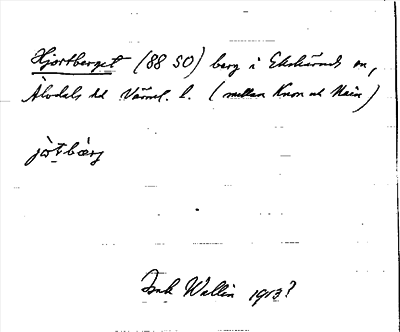 Hjortberget (88 SO) berg i Ekshärads sn,
Älvdals hd Värml. l. (mellan Knon och Näin)
jo̱tbærj
Wallin 1913?